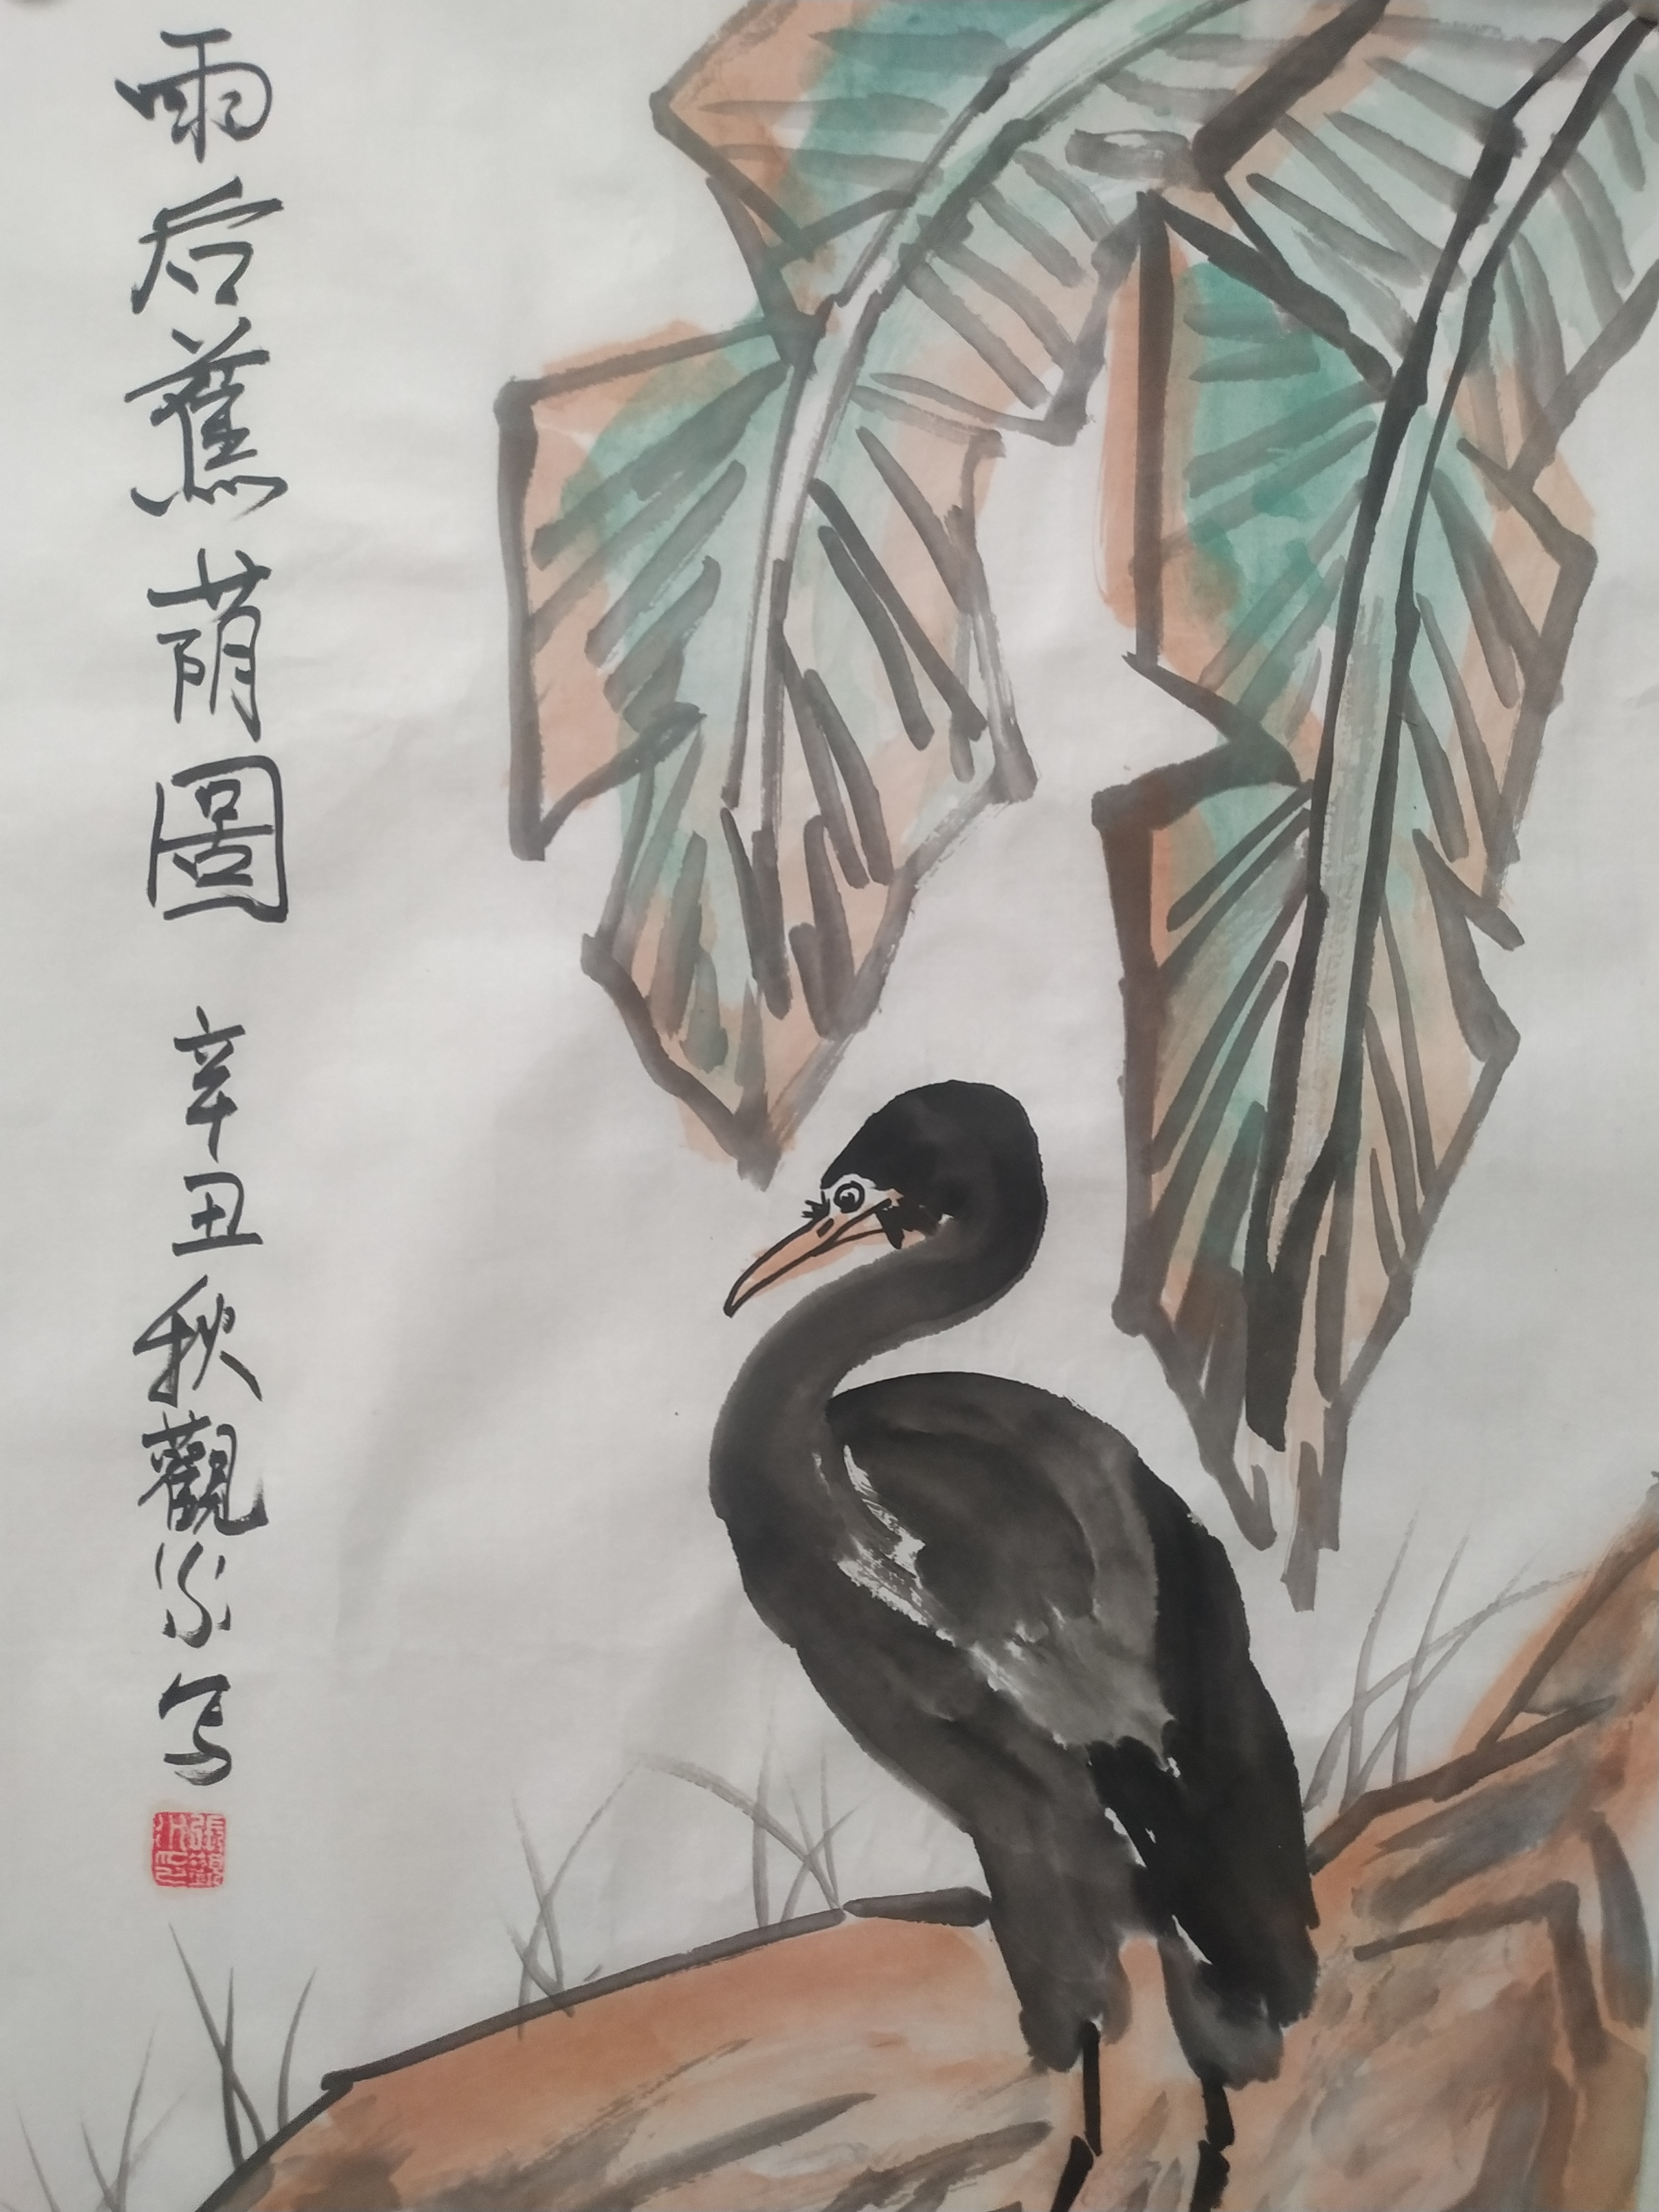 雨后蕉荫圖 辛丑秋觀写